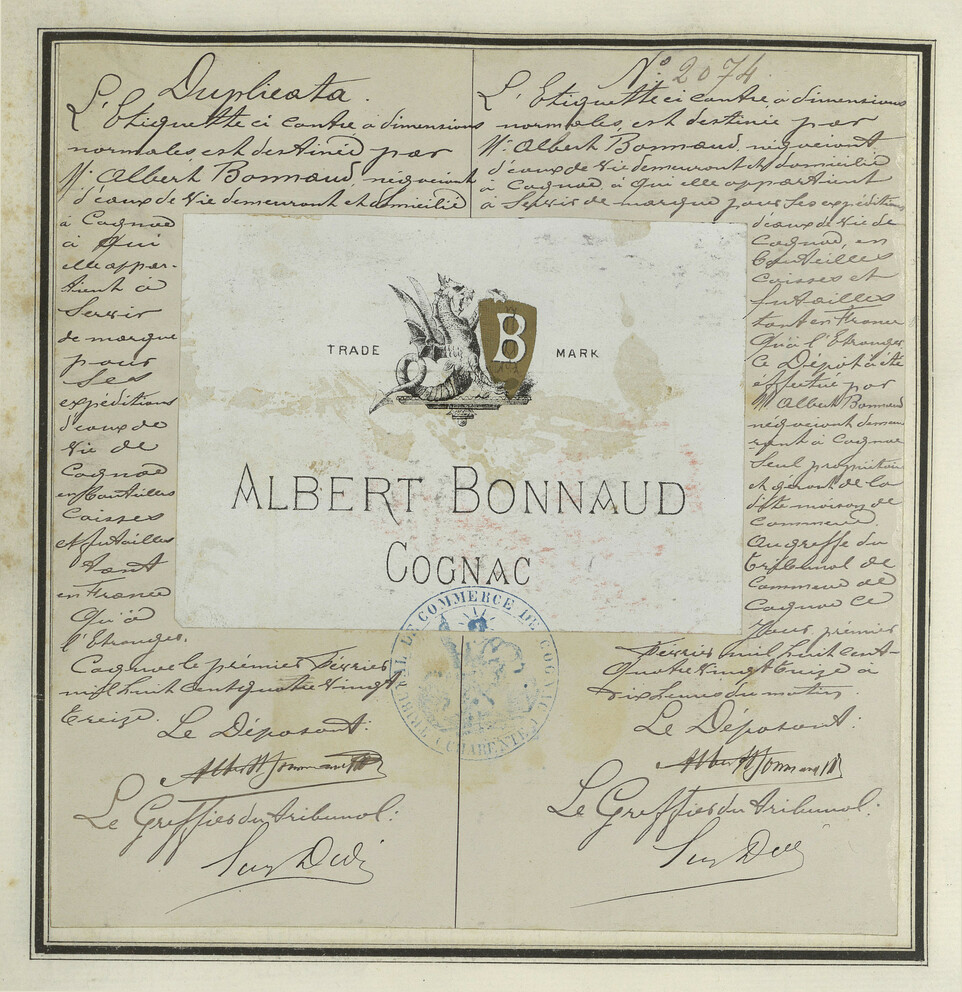 Duplicata.
L'Etiquette ci contre, à dimensions
normales, est destinée par
Mr. Albert Bonnaud, négociant
d'eaux de Vie demeurant et domicilié
à Cognac
à qui
elle appar-
tient à
Servir
de marque
pour
Ses
expéditions
d'eaux de
Vie de
Cognac
en Bouteilles
Caisses
et futailles
tant
en France
Qu'à
l'Etranger.
Cognac le premier Février
mil huit cent quatre Vingt
treize.
Le Déposant:
Le Greffier du tribunal:
No. 2074.
L'Etiquette ci contre, à dimensions
normales, est destinée par
Mr. Albert Bonnaud, négociant
d'eaux de Vie demeurant et domicilié
à Cognac, à qui elle appartient
à Servir de marque pour Ses expéditions
d'eaux de Vie de
Cognac, en
Bouteilles
Caisses et
futailles
tant en France
Qu'à l'Etranger
Ce Dépôt a été
effectué par
Mr Albert Bonnaud
négociant demeu-
rant à Cognac
Seul propriétaire
et gérant de la
dite maison de
Commerce.
Au greffe du
tribunal de
Commerce de
Cognac ce
Jour premier
Février mil huit cent
Quatre Vingt treize à
Dix heures du matin.
Le Déposant:
Le Greffier du tribunal:
TRADE MARK
B
ALBERT BONNAUD
COGNAC
TRIBUNAL DE COMMERCE DE COGNAC
(CHARENTE)